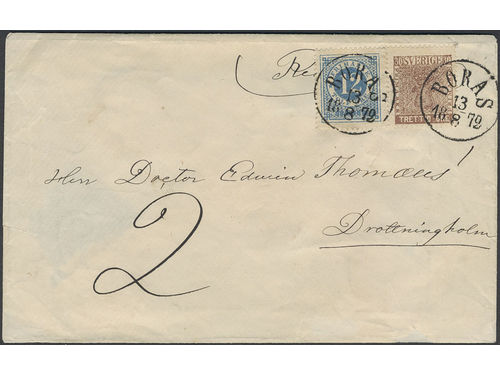 BORÅS
13
18 8 72
12
30 SVERIGE 30
TRETTIO
BORÅS
13
18 8 72
Herr Doctor Edwin Thomæus!
Drottningholm
2